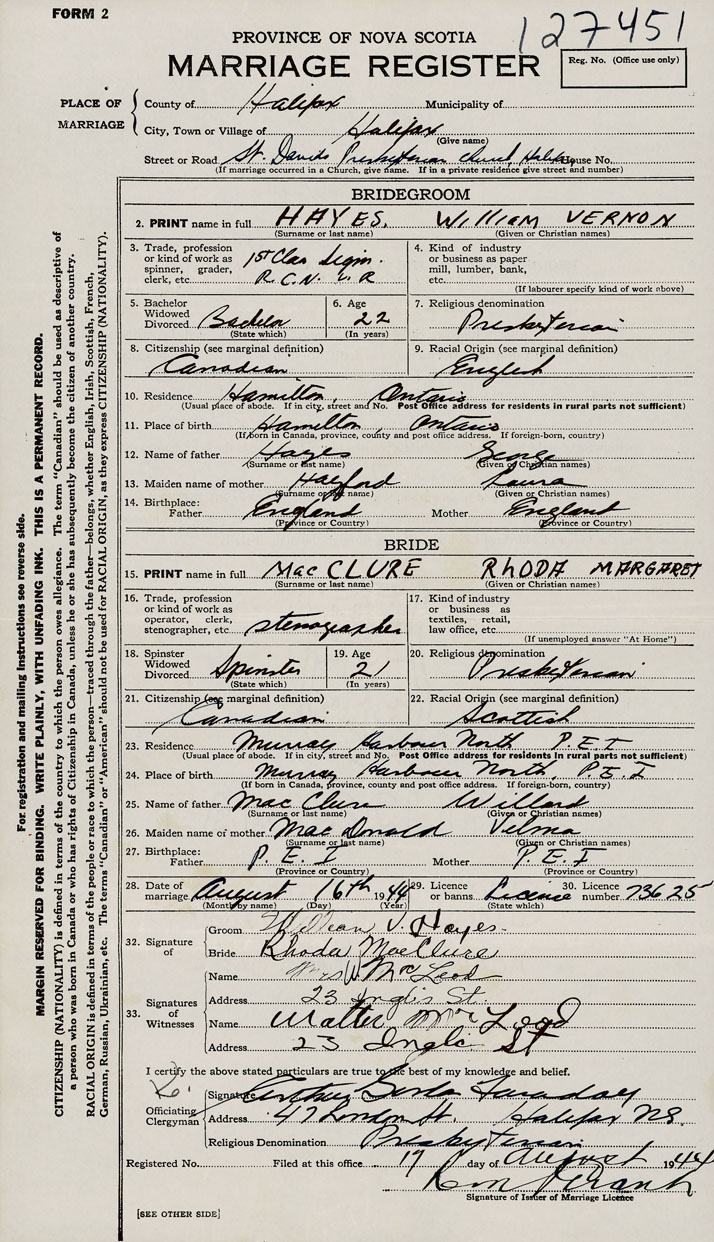 FORM 2
127451
PROVINCE OF NOVA SCOTIA
MARRIAGE REGISTER
Reg. No. (Office use only)
PLACE OF MARRIAGE
County of Halifax Municipality of
City, Town or Village of Halifax
(Give name)
Street or Road St. Davids Presbyterian Church, Halifax House No.
(If marriage occurred in a Church, give name. If in a private residence give street and number)
BRIDEGROOM
2. PRINT name in full HAYES, WILLIAM VERNON
(Surname or last name) (Given or Christian names)
3. Trade, profession or kind of work as spinner, grader, clerk, etc. 1st Clas Sigm. R.C.N.V.R
4. Kind of industry or business as paper mill, lumber, bank, etc.
(If labourer specify kind of work above)
5. Bachelor Widowed Divorced Bachelor
(State which)
6. Age 22
(In years)
7. Religious denomination
Presbyterian
8. Citizenship (see marginal definition)
Canadian
9. Racial Origin (see marginal definition)
English
10. Residence Hamilton, Ontario
(Usual place of abode. If in city, street and No. Post Office address for residents in rural parts not sufficient)
11. Place of birth Hamilton, Ontario
(If born in Canada, province, county and post office address. If foreign-born, country)
12. Name of father Hayes George
(Surname or last name) (Given or Christian names)
13. Maiden name of mother Hayford Laura
(Surname or last name) (Given or Christian names)
14. Birthplace:
Father England Mother England
(Province or Country) (Province or Country)
BRIDE
15. PRINT name in full MacCLURE RHODA MARGARET
(Surname or last name) (Given or Christian names)
16. Trade, profession or kind of work as operator, clerk, stenographer, etc stenographer
17. Kind of industry or business as textiles, retail, law office, etc.
(If unemployed answer "At Home")
18. Spinster Widowed Divorced Spinster
(State which)
19. Age 21
(In years)
20. Religious denomination
Presbyterian
21. Citizenship (see marginal definition)
Canadian
22. Racial Origin (see marginal definition)
Scottish
23. Residence Murray Harbour North P.E.I
(Usual place of abode. If in city, street and No. Post Office address for residents in rural parts not sufficient)
24. Place of birth Murray Harbour North, P.E.I
(If born in Canada, province, county and post office address. If foreign-born, country)
25. Name of father MacClure Willard
(Surname or last name) (Given or Christian names)
26. Maiden name of mother MacDonald Velma
(Surname or last name) (Given or Christian names)
27. Birthplace:
Father P.E.I Mother P.E.I
(Province or Country) (Province or Country)
28. Date of marriage August 16th 1944
(Month by name) (Day) (Year)
29. Licence or banns. License
(State which)
30. Licence number 73625
32. Signature of
Groom William V. Hayes
Bride Rhoda MacClure
33. Signatures of Witnesses
Name Mrs W. McLeod
Address 23 Inglis St.
Name Walter McLeod
Address 23 Inglis St
I certify the above stated particulars are true to the best of my knowledge and belief.
Officiating Clergyman
Signature Faraday
Address 47 London St. Halifax N.S.
Religious Denomination Presbyterian
Registered No. Filed at this office 17 day of August 1944
Signature of Issuer of Marriage Licence
[SEE OTHER SIDE]
For registration and mailing instructions see reverse side.
MARGIN RESERVED FOR BINDING. WRITE PLAINLY, WITH UNFADING INK. THIS IS A PERMANENT RECORD.
CITIZENSHIP (NATIONALITY) is defined in terms of the country to which the person owes allegiance. The term "Canadian" should be used as descriptive of
a person who was born in Canada or who has rights of Citizenship in Canada, unless he or she has subsequently become the citizen of another country.
RACIAL ORIGIN is defined in terms of the people or race to which the person—traced through the father—belongs, whether English, Irish, Scottish, French,
German, Russian, Ukrainian, etc. The terms "Canadian" or "American" should not be used for RACIAL ORIGIN, as they express CITIZENSHIP (NATIONALITY).